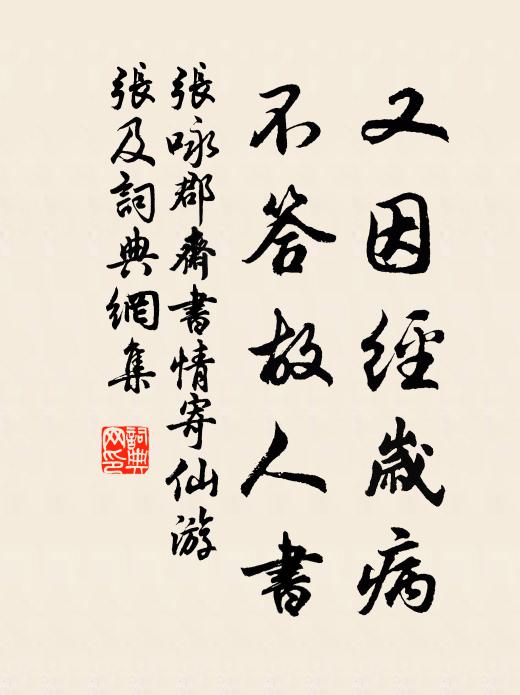 又因經歲病
不答故人書
張咏郡齋書情寄仙游
張及詞典網集
詞典網印